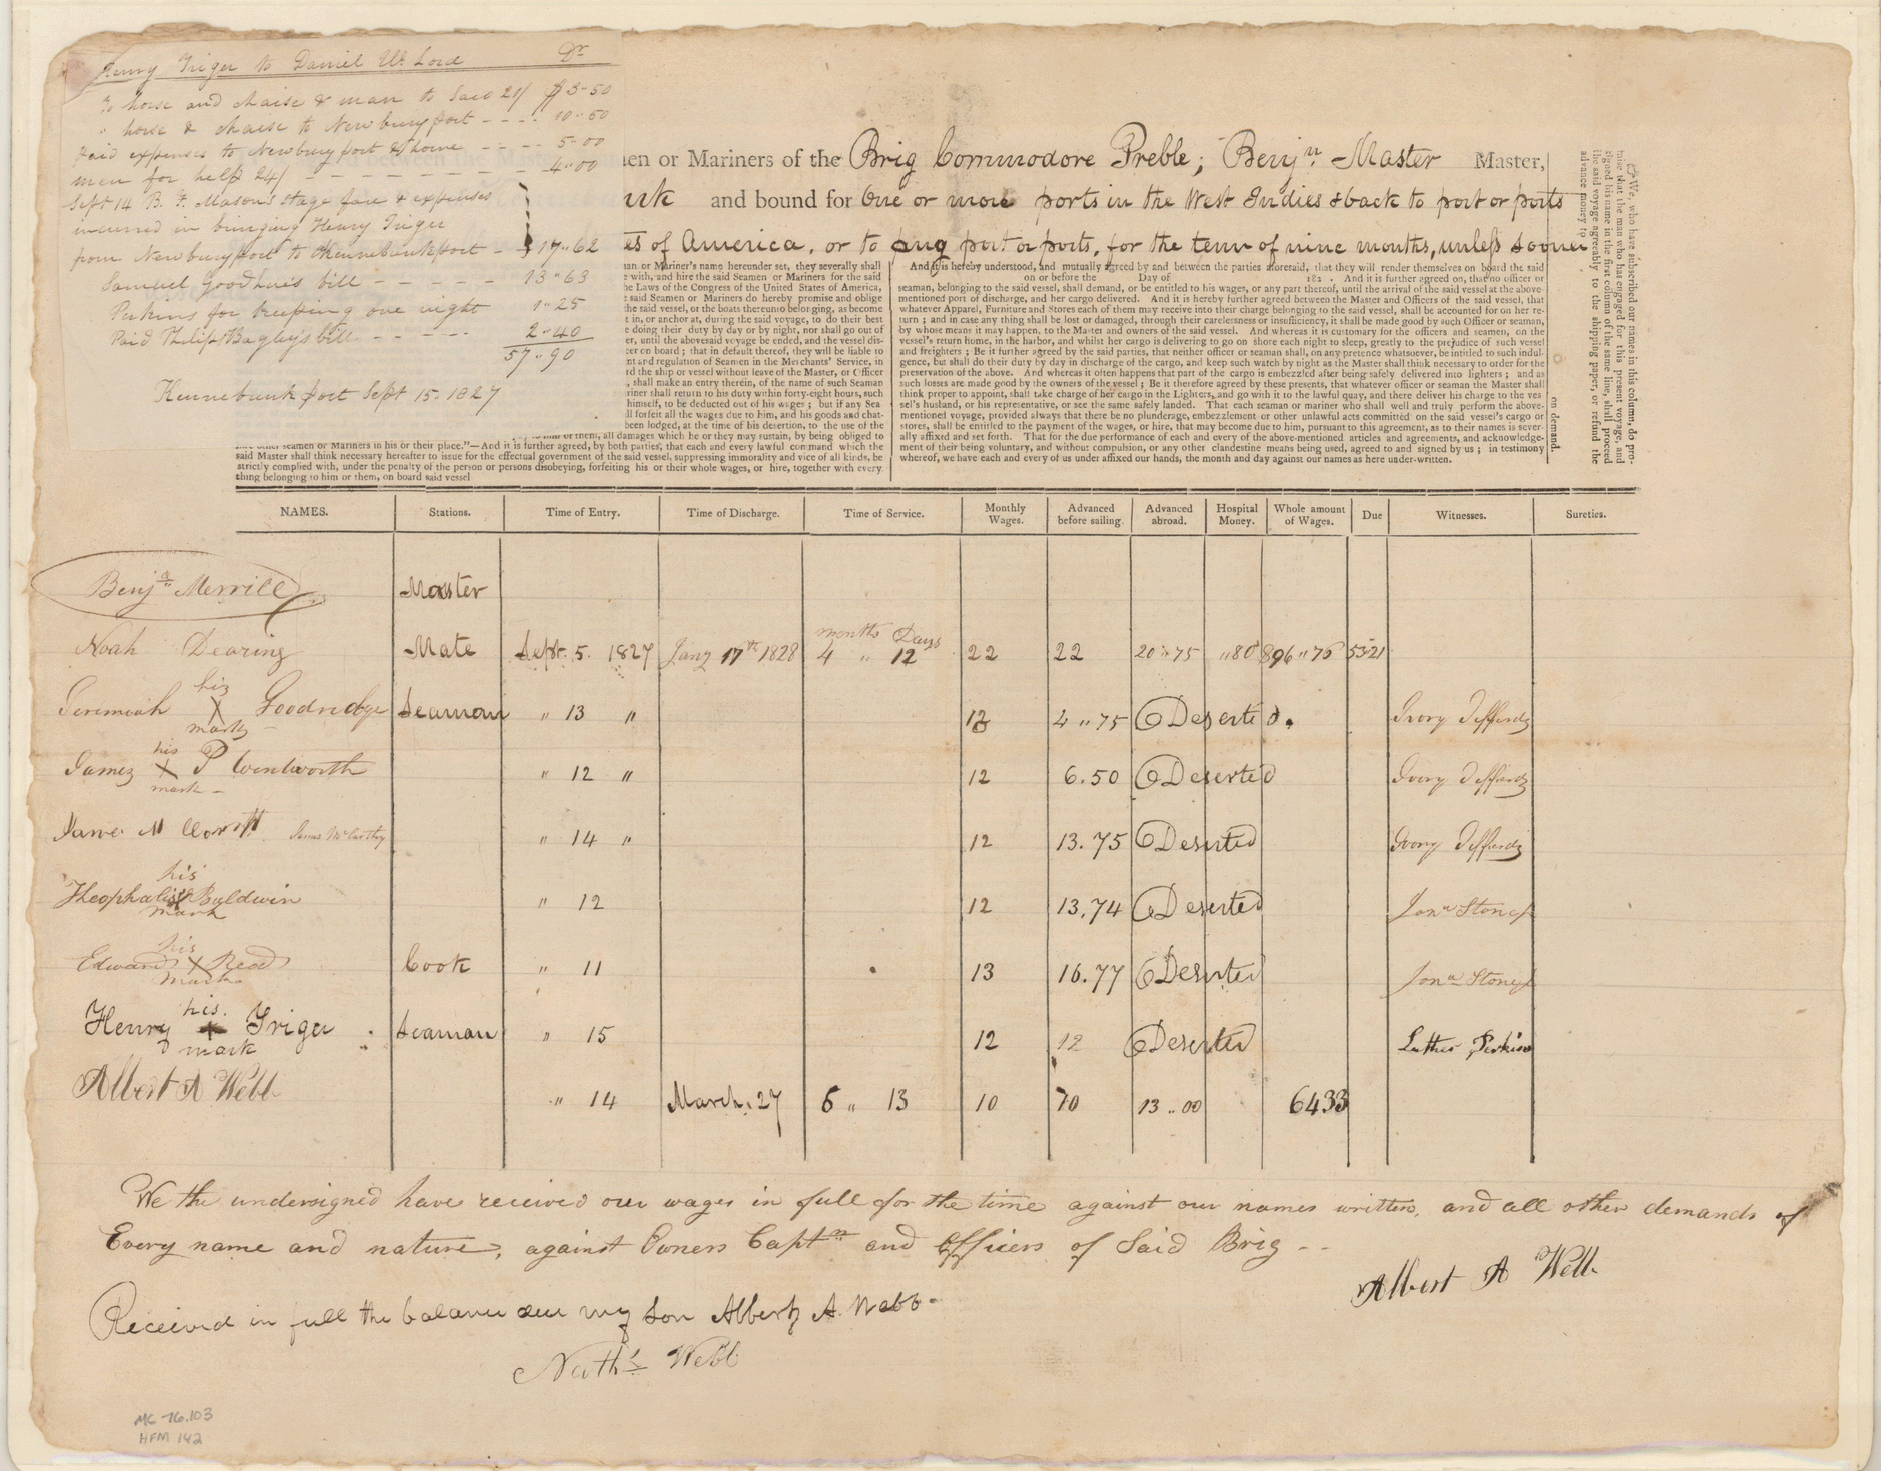 Henry Triger to Daniel W. Lord Dr
To horse and chaise & man to Saco 21/ $3-50
" horse & chaise to Newburyport - - - - 10"50
Paid expenses to Newburyport & home - - - - 5-00
men for help 24/ - - - - - - - - 4"00
Sept 14 B. F. Mason's stage fare & expenses
incurred in bringing Henry Triger
from Newburyport to Kennebunkport - 17"62
Samuel Goodhue's bill - - - - - 13"63
Perkins for keeping one night 1"25
Paid Philip Bagley's bill - - - - 2"40
57"90
Kennebunk port Sept 15. 1827
en or Mariners of the Brig Commodore Preble; Benjn Master Master,
unk and bound for One or more ports in the West Indies & back to port or ports
es of America, or to any port or ports, for the term of nine months, unless sooner
an or Mariner's name hereunder set, they severally shall
e with, and hire the said Seamen or Mariners for the said
he Laws of the Congress of the United States of America,
e said Seamen or Mariners do hereby promise and oblige
the said vessel, or the boats thereunto belonging, as become
t in, or anchor at, during the said voyage, to do their best
e doing their duty by day or by night, nor shall go out of
er, until the abovesaid voyage be ended, and the vessel dis-
cer on board; that in default thereof, they will be liable to
nt and regulation of Seamen in the Merchants' Service, in
rd the ship or vessel without leave of the Master, or Officer
, shall make an entry therein, of the name of such Seaman
riner shall return to his duty within forty-eight hours, such
himself, to be deducted out of his wages; but if any Sea
ll forfeit all the wages due to him, and his goods and chat-
been lodged, at the time of his desertion, to the use of the
or them, all damages which he or they may sustain, by being obliged to
other Seamen or Mariners in his or their place."—And it is further agreed, by both parties, that each and every lawful command which the
said Master shall think necessary hereafter to issue for the effectual government of the said vessel, suppressing immorality and vice of all kinds, be
strictly complied with, under the penalty of the person or persons disobeying, forfeiting his or their whole wages, or hire, together with every
thing belonging to him or them, on board said vessel
And it is hereby understood, and mutually agreed by and between the parties aforesaid, that they will render themselves on board the said
on or before the Day of 182 . And it is further agreed on, that no officer or
seaman, belonging to the said vessel, shall demand, or be entitled to his wages, or any part thereof, until the arrival of the said vessel at the above-
mentioned port of discharge, and her cargo delivered. And it is hereby further agreed between the Master and Officers of the said vessel, that
whatever Apparel, Furniture and Stores each of them may receive into their charge belonging to the said vessel, shall be accounted for on her re-
turn; and in case any thing shall be lost or damaged, through their carelessness or insufficiency, it shall be made good by such Officer or seaman,
by whose means it may happen, to the Master and owners of the said vessel. And whereas it is customary for the officers and seamen, on the
vessel's return home, in the harbor, and whilst her cargo is delivering to go on shore each night to sleep, greatly to the prejudice of such vessel
and freighters; Be it further agreed by the said parties, that neither officer or seaman shall, on any pretence whatsoever, be entitled to such indul-
gence, but shall do their duty by day in discharge of the cargo, and keep such watch by night as the Master shall think necessary to order for the
preservation of the above. And whereas it often happens that part of the cargo is embezzled after being safely delivered into lighters; and as
such losses are made good by the owners of the vessel; Be it therefore agreed by these presents, that whatever officer or seaman the Master shall
think proper to appoint, shall take charge of her cargo in the Lighters, and go with it to the lawful quay, and there deliver his charge to the ves
sel's husband, or his representative, or see the same safely landed. That each seaman or mariner who shall well and truly perform the above-
mentioned voyage, provided always that there be no plunderage, embezzlement or other unlawful acts committed on the said vessel's cargo or
stores, shall be entitled to the payment of the wages, or hire, that may become due to him, pursuant to this agreement, as to their names is sever-
ally affixed and set forth. That for the due performance of each and every of the above-mentioned articles and agreements, and acknowledge-
ment of their being voluntary, and without compulsion, or any other clandestine means being used, agreed to and signed by us; in testimony
whereof, we have each and every of us under affixed our hands, the month and day against our names as here under-written.
☞ We, who have subscribed our names in this column, do pro-
mise that the man who has engaged for this present voyage, and
signed his name in the first column of the same line, shall proceed
the said voyage agreeably to the shipping paper, or refund the
advance money to
on demand.
NAMES. Stations. Time of Entry. Time of Discharge. Time of Service. Monthly Wages. Advanced before sailing. Advanced abroad. Hospital Money. Whole amount of Wages. Due Witnesses. Sureties.
Benjn Merrill Master
months Days
Noah Dearing Mate Sept. 5. 1827 Jany 17th 1828 4 " 12 22 22 20"75 "80 896"76 53-21
his
Jeremiah X Goodredge Seaman " 13 " 12 4"75 Deserted. Ivory Jefferds
mark
his
James X P Wentworth " 12 " 12 6.50 Deserted Ivory Jefferds
mark
James McCarthy " 14 " 12 13.75 Deserted Ivory Jefferds
his
Theophalis X Baldwin " 12 12 13.74 Deserted Jona Stone
mark
his
Edward X Read Cook " 11 13 16.77 Deserted Jona Stone
mark
his
Henry X Triger Seaman " 15 12 12 Deserted Luther Perkins
mark
Albert A Webb " 14 March. 27 6 " 13 10 70 13"00 6433
We the undersigned have received our wages in full for the time against our names written, and all other demands of
Every name and nature, against Owners Captn and Officers of Said Brig --
Albert A Webb
Received in full the balance due my son Albert A. Webb-
Nathl Webb
MC 76.103
HFM 142